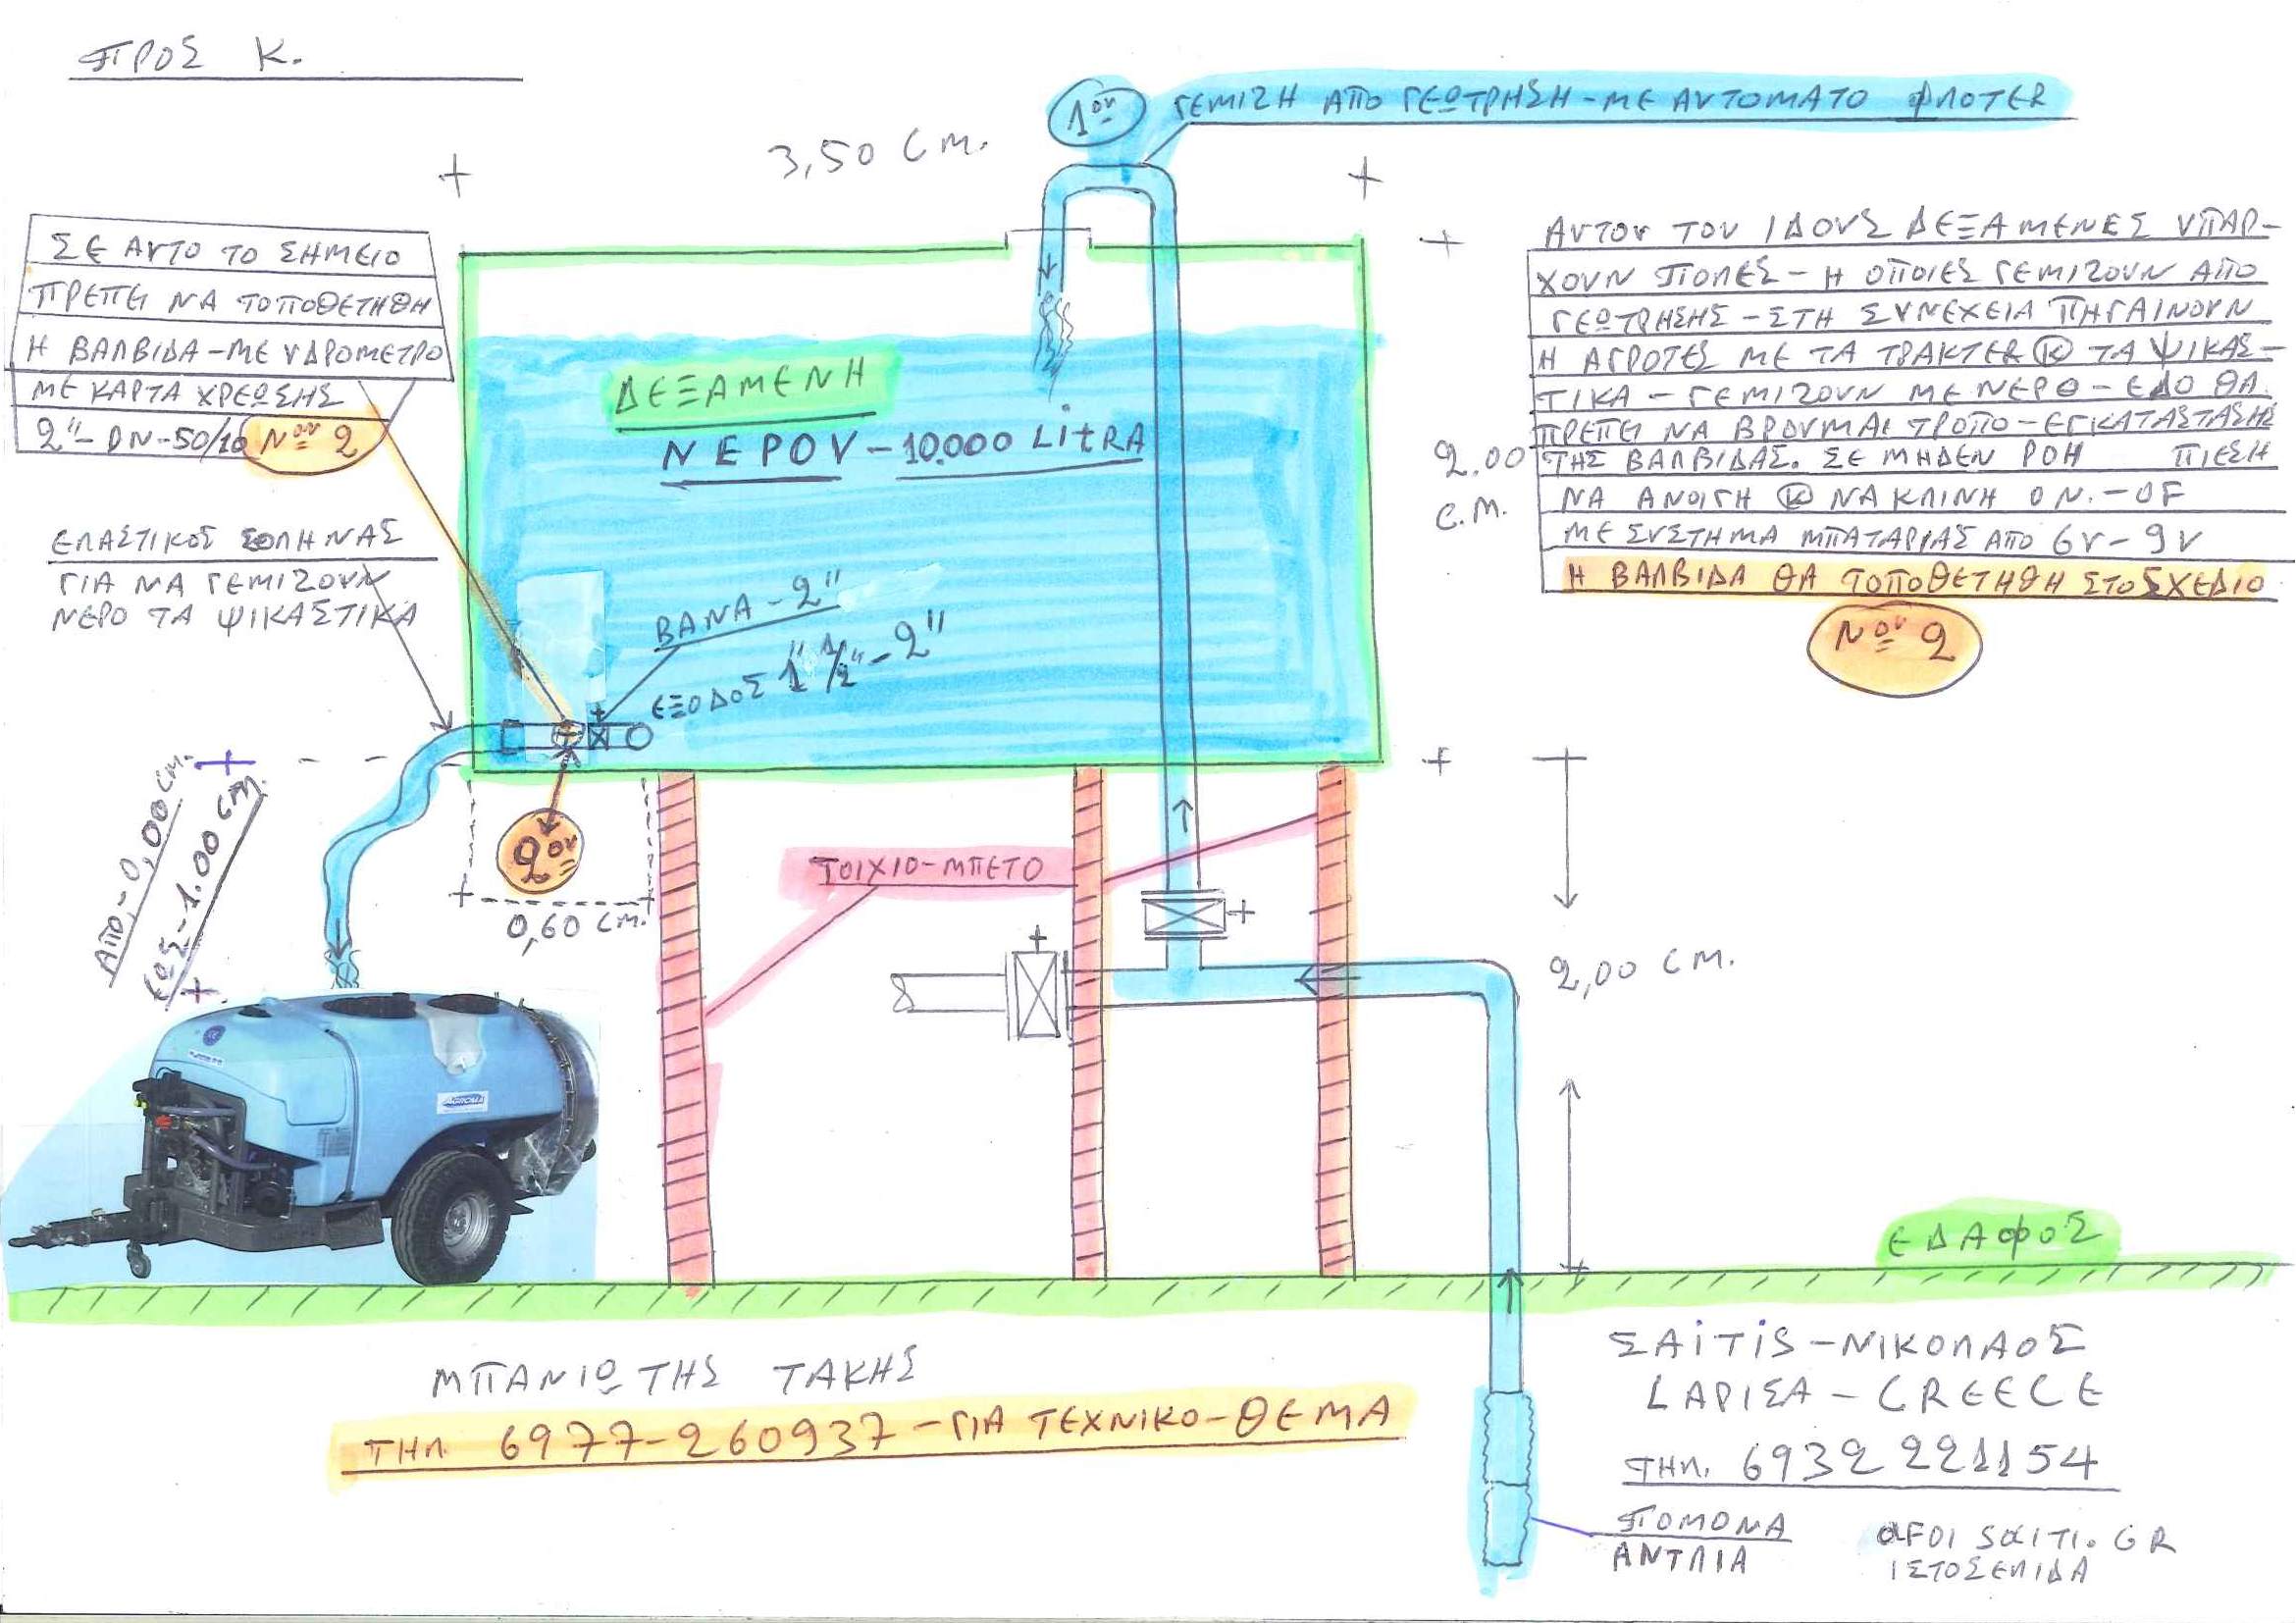 ΠΡΟΣ Κ.
1ον ΓΕΜΙΖΗ ΑΠΟ ΓΕΩΤΡΗΣΗ - ΜΕ ΑΥΤΟΜΑΤΟ ΦΛΟΤΕR
3,50 CM.
ΣΕ ΑΥΤΟ ΤΟ ΣΗΜΕΙΟ
ΠΡΕΠΕΙ ΝΑ ΤΟΠΟΘΕΤΗΘΗ
Η ΒΑΛΒΙΔΑ - ΜΕ ΥΔΡΟΜΕΤΡΟ
ΜΕ ΚΑΡΤΑ ΧΡΕΩΣΗΣ
2"- DN-50/10 Νον 2
ΕΛΑΣΤΙΚΟΣ ΣΟΛΗΝΑΣ
ΓΙΑ ΝΑ ΓΕΜΙΖΟΥΝ
ΝΕΡΟ ΤΑ ΨΙΚΑΣΤΙΚΑ
ΔΕΞΑΜΕΝΗ
ΝΕΡΟΥ - 10.000 LitRA
ΒΑΝΑ - 2"
ΕΞΟΔΟΣ 1" 1/2" - 2"
ΑΥΤΟΥ ΤΟΥ ΙΔΟΥΣ ΔΕΞΑΜΕΝΕΣ ΥΠΑΡ-
ΧΟΥΝ ΠΟΛΕΣ - Η ΟΠΟΙΕΣ ΓΕΜΙΖΟΥΝ ΑΠΟ
ΓΕΩΤΡΗΣΗΣ - ΣΤΗ ΣΥΝΕΧΕΙΑ ΠΗΓΑΙΝΟΥΝ
Η ΑΓΡΟΤΕΣ ΜΕ ΤΑ ΤΡΑΚΤΕR Κ ΤΑ ΨΙΚΑΣ-
ΤΙΚΑ - ΓΕΜΙΖΟΥΝ ΜΕ ΝΕΡΟ - ΕΔΟ ΘΑ
ΠΡΕΠΕΙ ΝΑ ΒΡΟΥΜΑΙ ΤΡΟΠΟ - ΕΓΚΑΤΑΣΤΑΣΗΣ
ΤΗΣ ΒΑΛΒΙΔΑΣ. ΣΕ ΜΗΔΕΝ ΡΟΗ ΠΙΕΣΗ
ΝΑ ΑΝΟΙΓΗ Κ ΝΑ ΚΛΙΝΗ ON.-OF
ΜΕ ΣΥΣΤΗΜΑ ΜΠΑΤΑΡΙΑΣ ΑΠΟ 6V - 9V
Η ΒΑΛΒΙΔΑ ΘΑ ΤΟΠΟΘΕΤΗΘΗ ΣΤΟ ΣΧΕΔΙΟ
Νον 2
2,00
C.M.
ΑΠΟ - 0,00 CM.
ΕΩΣ - 1.00 CM.
2ον
0,60 CM.
ΤΟΙΧΙΟ - ΜΠΕΤΟ
2,00 CM.
AGROMA
ΕΔΑΦΟΣ
ΜΠΑΝΙΩΤΗΣ ΤΑΚΗΣ
ΤΗΛ. 6977-260937 - ΓΙΑ ΤΕΧΝΙΚΟ - ΘΕΜΑ
ΣAiTiS - ΝΙΚΟΛΑΟΣ
LΑΡΙΣΑ - GREECE
ΤΗΛ. 6932 221154
ΠΟΜΟΝΑ
ΑΝΤΛΙΑ
αFOI SαITI.GR
ΙΣΤΟΣΕΛΙΔΑ